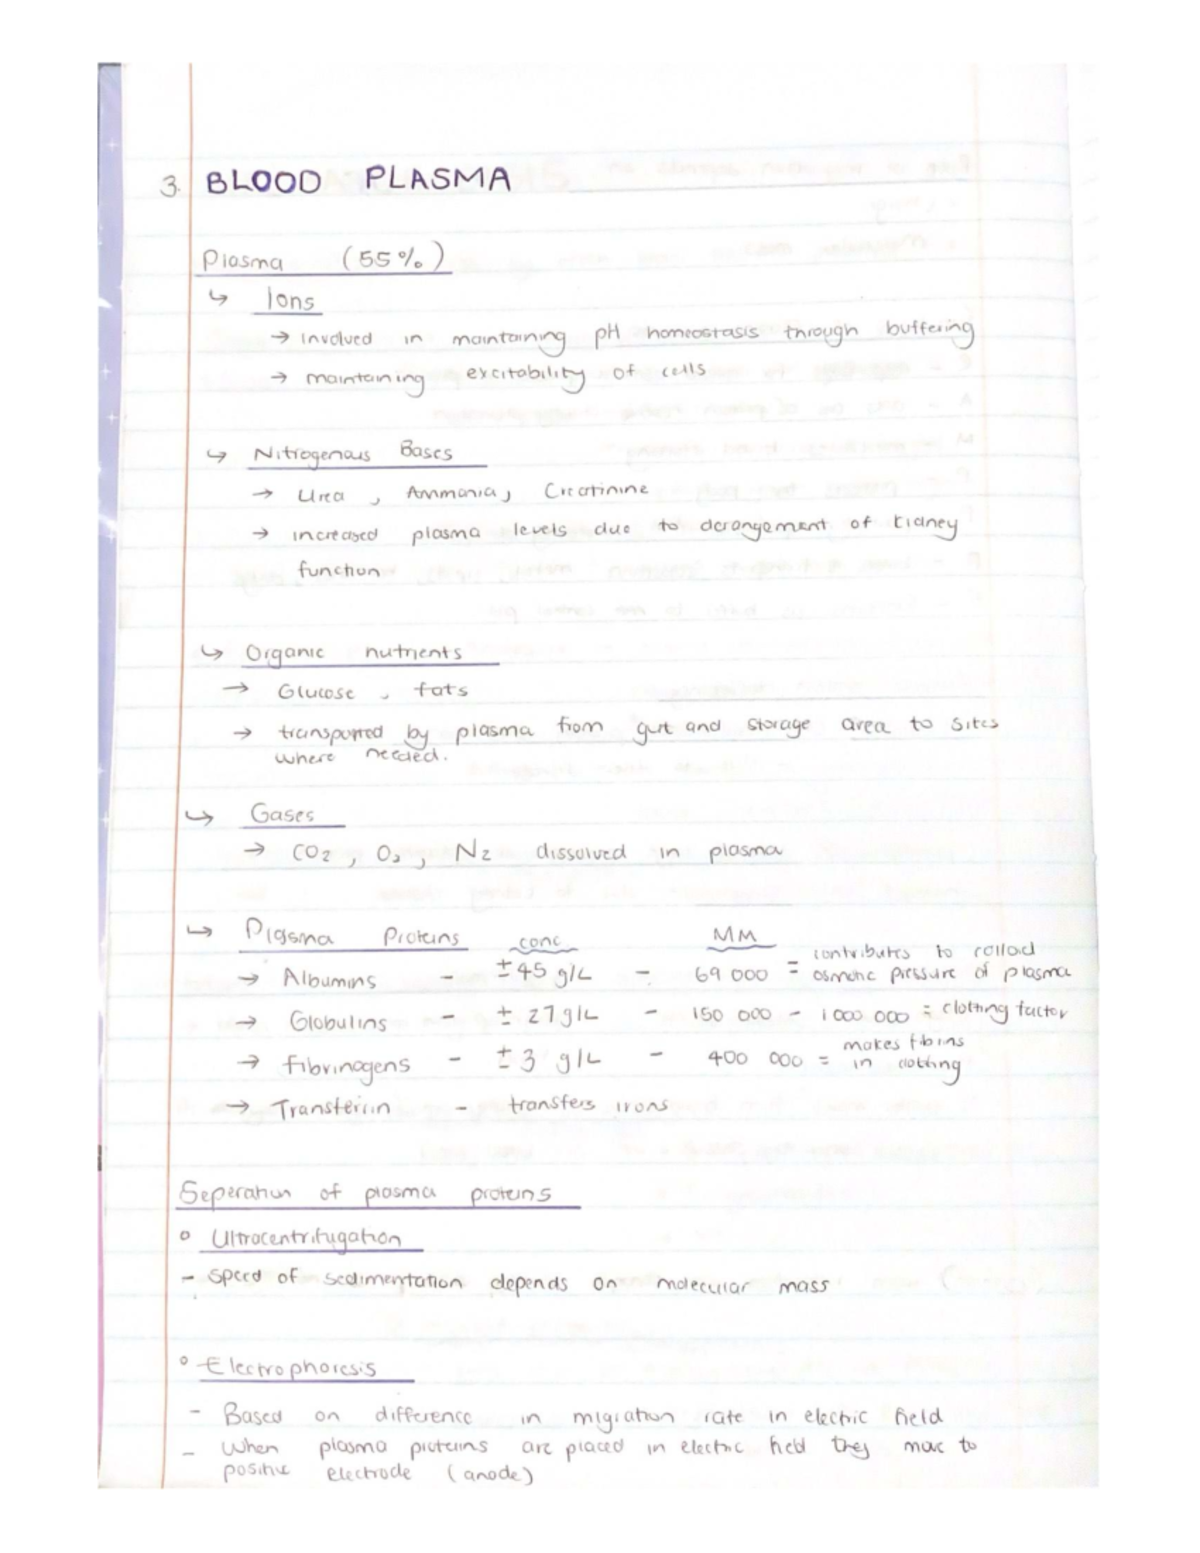 3. BLOOD PLASMA
Plasma (55%)
↳ Ions
→ involved in maintaining pH homeostasis through buffering
→ maintaining excitability of cells
↳ Nitrogenous Bases
→ Urea, Ammonia, Creatinine
→ increased plasma levels due to derangement of kidney
function
↳ Organic nutrients
→ Glucose, fats
→ transported by plasma from gut and storage area to sites
where needed.
↳ Gases
→ CO2, O2, N2 dissolved in plasma
↳ Plasma Proteins conc MM
→ Albumins - ±45 g/L - 69 000 = contributes to colloid osmotic pressure of plasma
→ Globulins - ± 27 g/L - 150 000 - 1 000 000 = clotting factor
→ Fibrinogens - ± 3 g/L - 400 000 = makes fibins in clotting
→ Transferrin - transfers irons
Seperation of plasma proteins
° Ultracentrifugation
- Speed of sedimentation depends on molecular mass
° Electrophoresis
- Based on difference in migration rate in electric field
- When plasma proteins are placed in electric field they move to
positive electrode (anode)